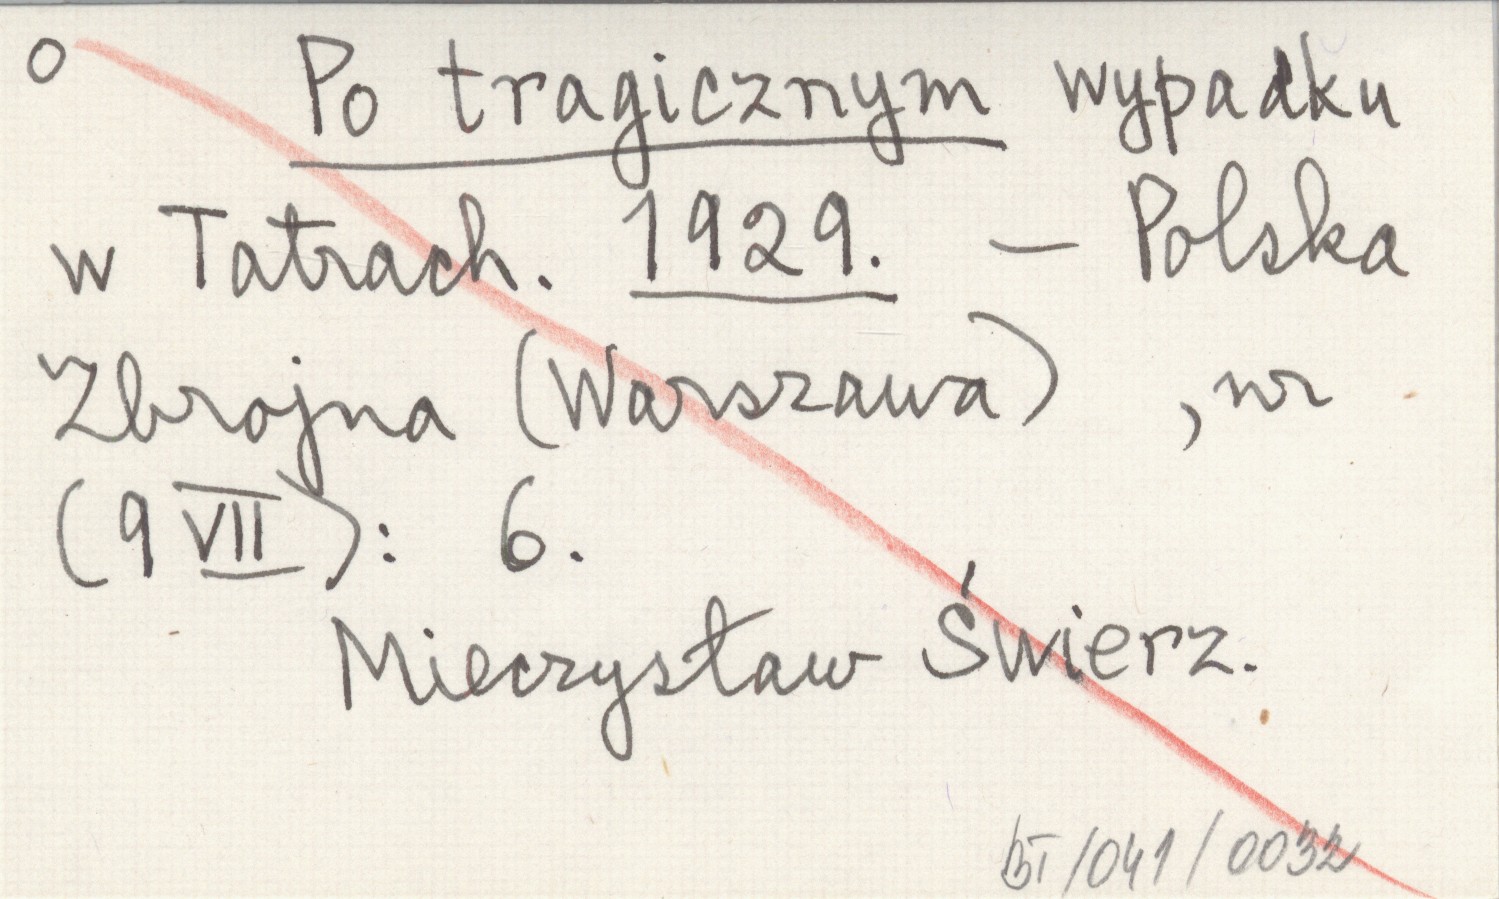 o Po tragicznym wypadku
w Tatrach. 1929. — Polska
Zbrojna (Warszawa) , nr
(9 VII): 6.
Mieczysław Świerz.
BT/041/0032